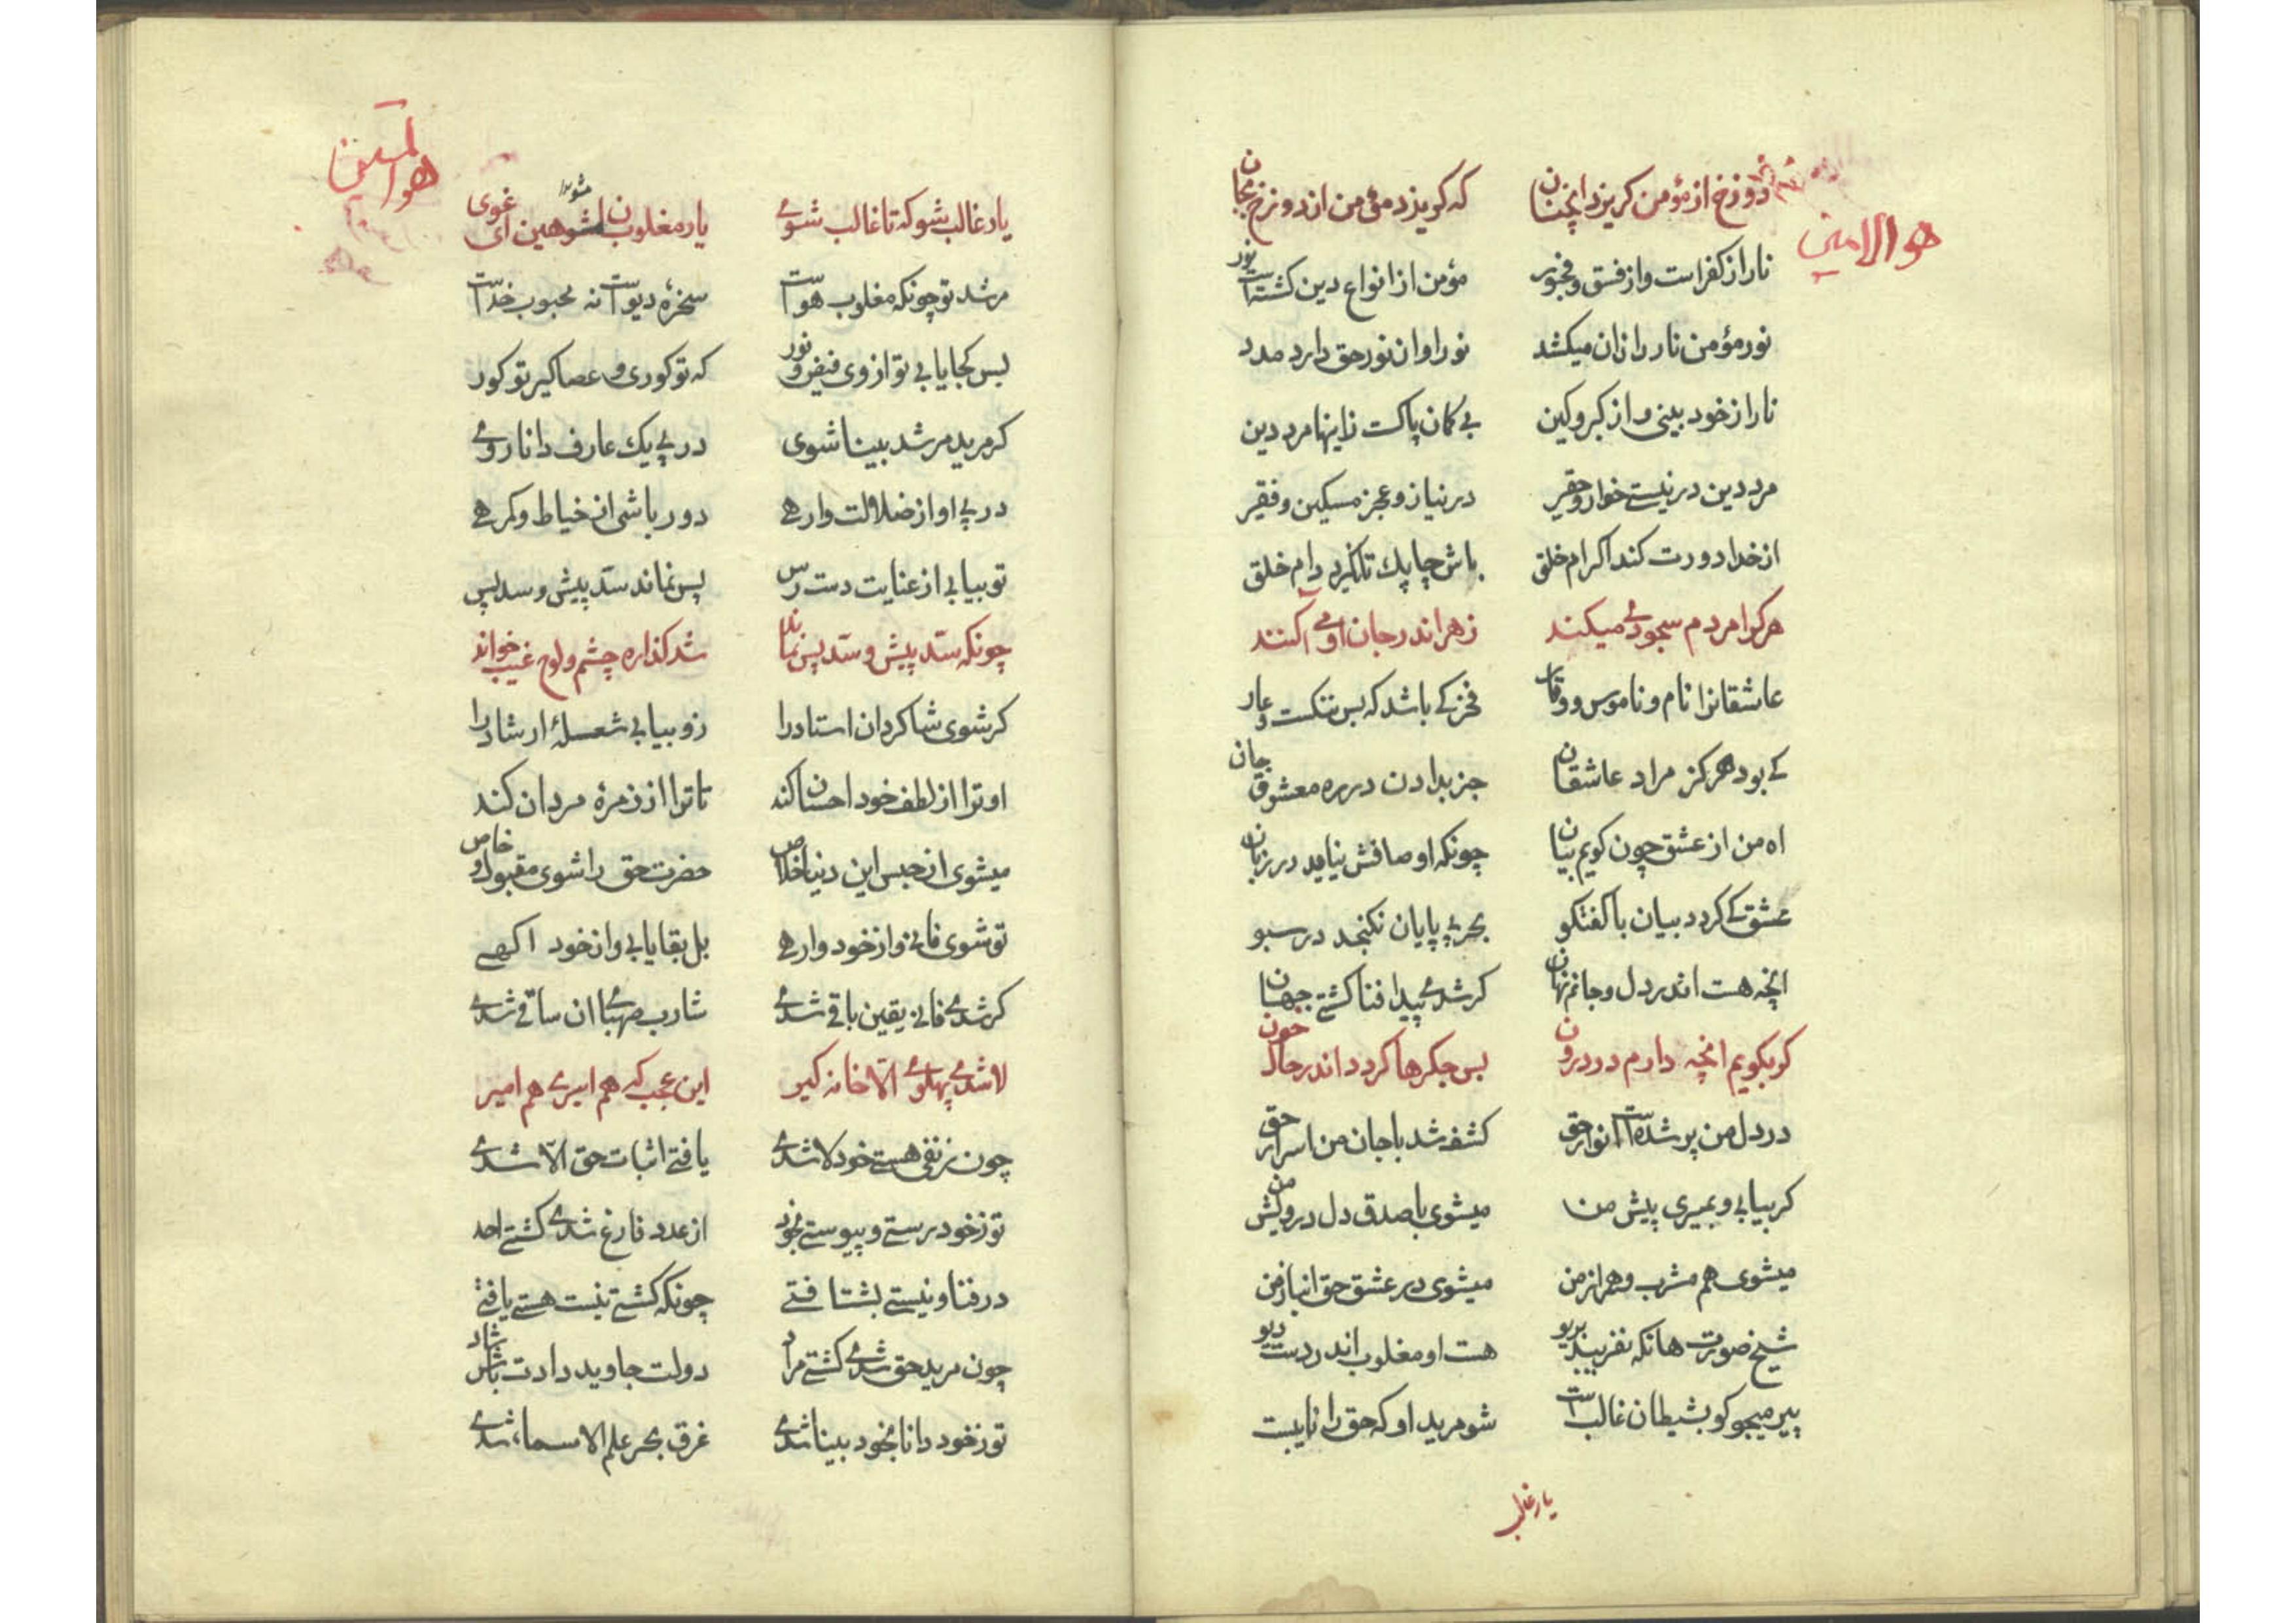 هو الامین
دوزخ از مؤمن كریزد انچنان که کریزد مؤمن از دوزخ بجان
نار از کفر است و از فسق و فجور مؤمن از انواع دین کشته است نور
نور مؤمن نار را زان میکشد نور او از نور حق دارد مدد
نار از خود بینی و از کبر و کین بی کمان پاکست زاینها مرد دین
مرد دین در نیستے خوار و حقیر در نیاز و عجز مسکین و فقیر
از خدا دورت کند اکرام خلق باش چاپك تا نکیرد دام خلق
هرکرا مردم سجودے میکند زهر اندر جان او مے اکنند
عاشقانرا نام و ناموس و وقار فخر کے باشد که بس ننکست و عار
کے بود هرکز مراد عاشقان جز بدادن در ره معشوق جان
اه من از عشق چون کویم بیان چونکه اوصافش نیاید در زبان
عشق کے کردد بیان با کفتکو بحر بے پایان نکنجد در سبو
انچه هست اندر دل و جانم نهان کر شدے پیدا فنا کشتے جهان
کر بکویم انچه دارم در درون بس جکرها کردد اندر حال خون
در دل من پر شده است انوار حق کشف شد با جان من اسرار حق
کر بیایی و بمیری پیش من میشوی با صدق دل درویش من
میشوی هم مشرب و همراز من میشوی در عشق حق انباز من
شیخ صورت هانکه نفریبد بریو هست او مغلوب اندر دست دیو
پیر میجو کو بشیطان غالب است شو مرید او که حق را نایبست
یار غالب
هو المعین
یار غالب شو که تا غالب شوے یار مغلوبان مشو هین ای غوی
مشو
مرشد تو چونکه مغلوب هواست سخرهٔ دیواست نه محبوب خداست
بس کجا یابی تو از وی فیض و نور که تو کوری و عصاکیر تو کور
کر مرید مرشد بینا شوی در پے یك عارف دانا روے
در پے او از ضلالت وارهے دور باشی از خیاط و کمرهے
تو بیابی از عنایت دست رس پس نماند سد پیش و سد پس
چونکه سد پیش و سد پس نماند شد کذاره چشم و لوح غیب خواند
کر شوی شاکردان استاد را زو بیابی شعلهٔ ارشاد را
او ترا از لطف خود احسان کند تا ترا از زمرهٔ مردان کند
میشوی از حبس این دنیا خلاص حضرت حق را شوی مقبول و خاص
تو شوی فانی و از خود وارهے بل بقا یابی و از خود اکهے
کر شدے فانی یقین باقے شدے شارب صهباے ان ساقے شدے
لا شدے پهلوے الا خانه کیر این عجب که هم اسیرے هم امیر
چون ز نفی هستے خود لا شدے یافتے اثبات حق الا شدے
تو ز خود رستے و پیوستے بخود از عدد فارغ شدے کشتے احد
در فنا و نیستے بشتافتے چونکه کشتے نیست هستے یافتے
چون مرید حق شدے کشتے مراد دولت جاوید دادت باش شاد
تو ز خود دانا بخود بینا شدے غرق بحر علم الاسماء شدے